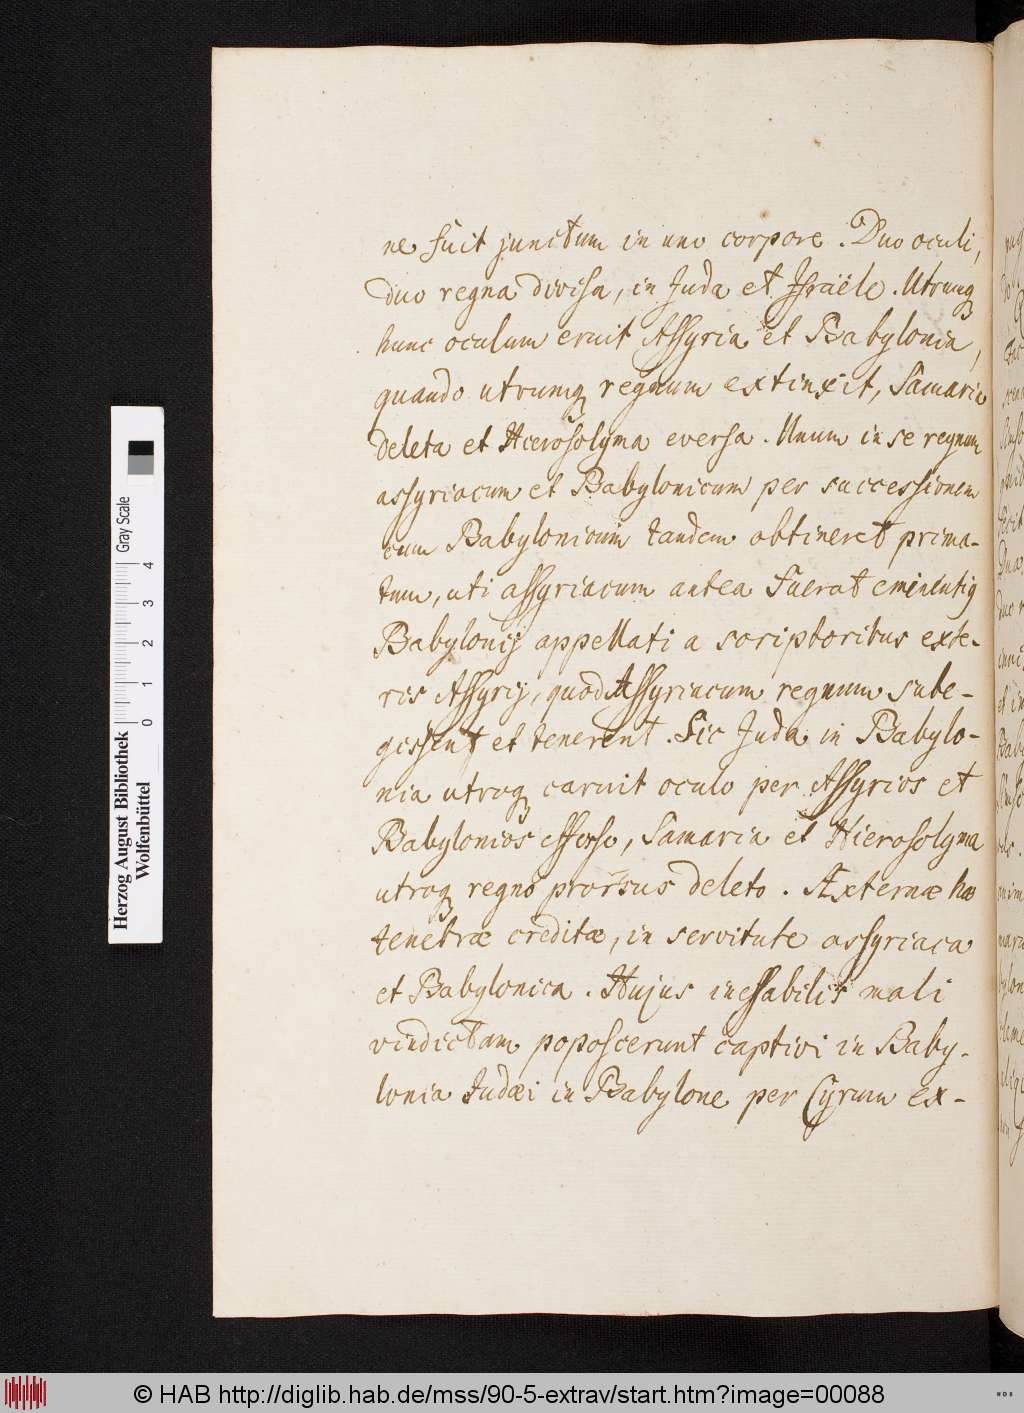 ne fuit junctum in uno corpore. Duo oculi,
duo regna divisa, in Juda et Israële. Utrumq
hunc oculum eruit Assyria et Babylonia,
quando utrumq regnum extinxit, Samaria
deleta et Hierosolyma eversa. Unum in se regnum
assyriacum et Babylonicum per successionem
cum Babylonicum tandem obtineret prima-
tum, uti assyriacum antea fuerat
Babylonij appellati a scriptoribus exte-
ris Assyrij, quod Assyriacum regnum sube-
gissent et tenerent. Sic Juda in Babylo-
nia utroq caruit oculo per Assyrios et
Babylonios effosso, Samaria et Hierosolyma
utroq regno prorsus deleto. Externæ hæ
tenebræ creditæ, in servitute assyriaca
et Babylonica. Hujus ineffabilis mali
vindictam poposcerunt captivi in Baby-
lonia Judæi in Babylone per Cyrum ex-
Herzog August Bibliothek
Wolfenbüttel
0 1 2 3 4 Gray Scale
© HAB http://diglib.hab.de/mss/90-5-extrav/start.htm?image=00088